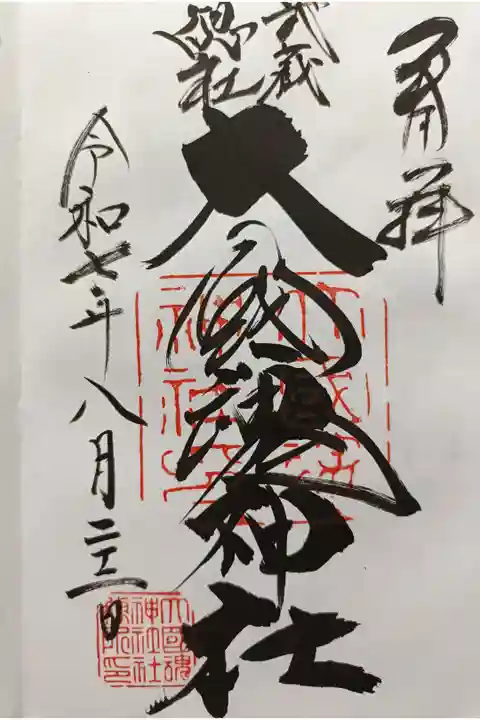 奉拝
武蔵
總社
大國魂神社
令和七年八月
大國魂
神社社
務所印